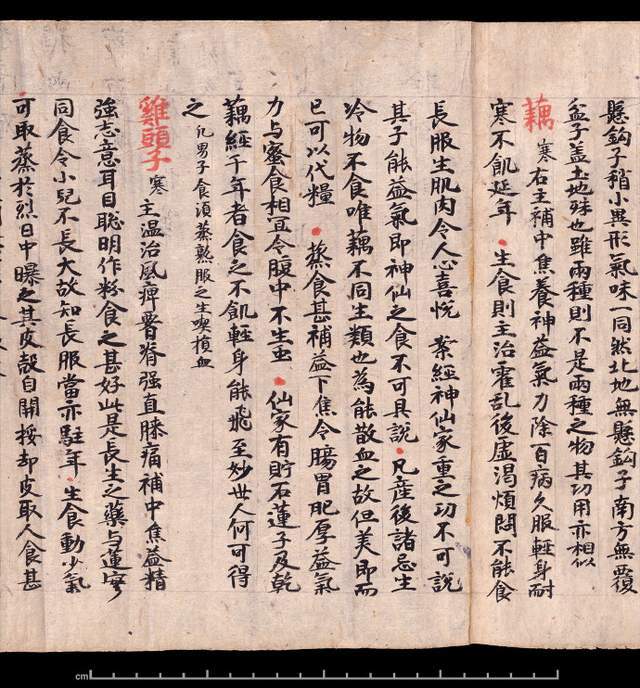 懸鈎子稍小異形氣味一同然北地無懸鈎子南方無覆
盆子盖土地殊也雖兩種則不是兩種之物其功用亦相似
藕 寒 右主補中焦養神益氣力除百病久服輕身耐
寒不飢延年 ・生食則主治霍乱後虛渴煩悶不能食
長服生肌肉令人心喜悅 案經神仙家重之功不可說
其子能益氣即神仙之食不可具說 ・凡産後諸忌生
冷物不食唯藕不同生類也為能散血之故但美即而
已可以代糧 ・蒸食甚補益下焦令腸胃肥厚益氣
力与蜜食相冝令腹中不生虫 ・仙家有貯石蓮子及乾
藕經千年者食之不飢輕身能飛至妙世人何可得
之 凡男子食湏蒸熟服之生喫損血
雞頭子 寒 主温治風痺𦝫脊强直膝痛補中焦益精
強志意耳目聡明作粉食之甚好此是長生之藥与蓮實
同食令小兒不長大故知長服當亦駐年 ・生食動少氣
可取蒸於烈日中曝之其皮殻自開挼却皮取人食甚